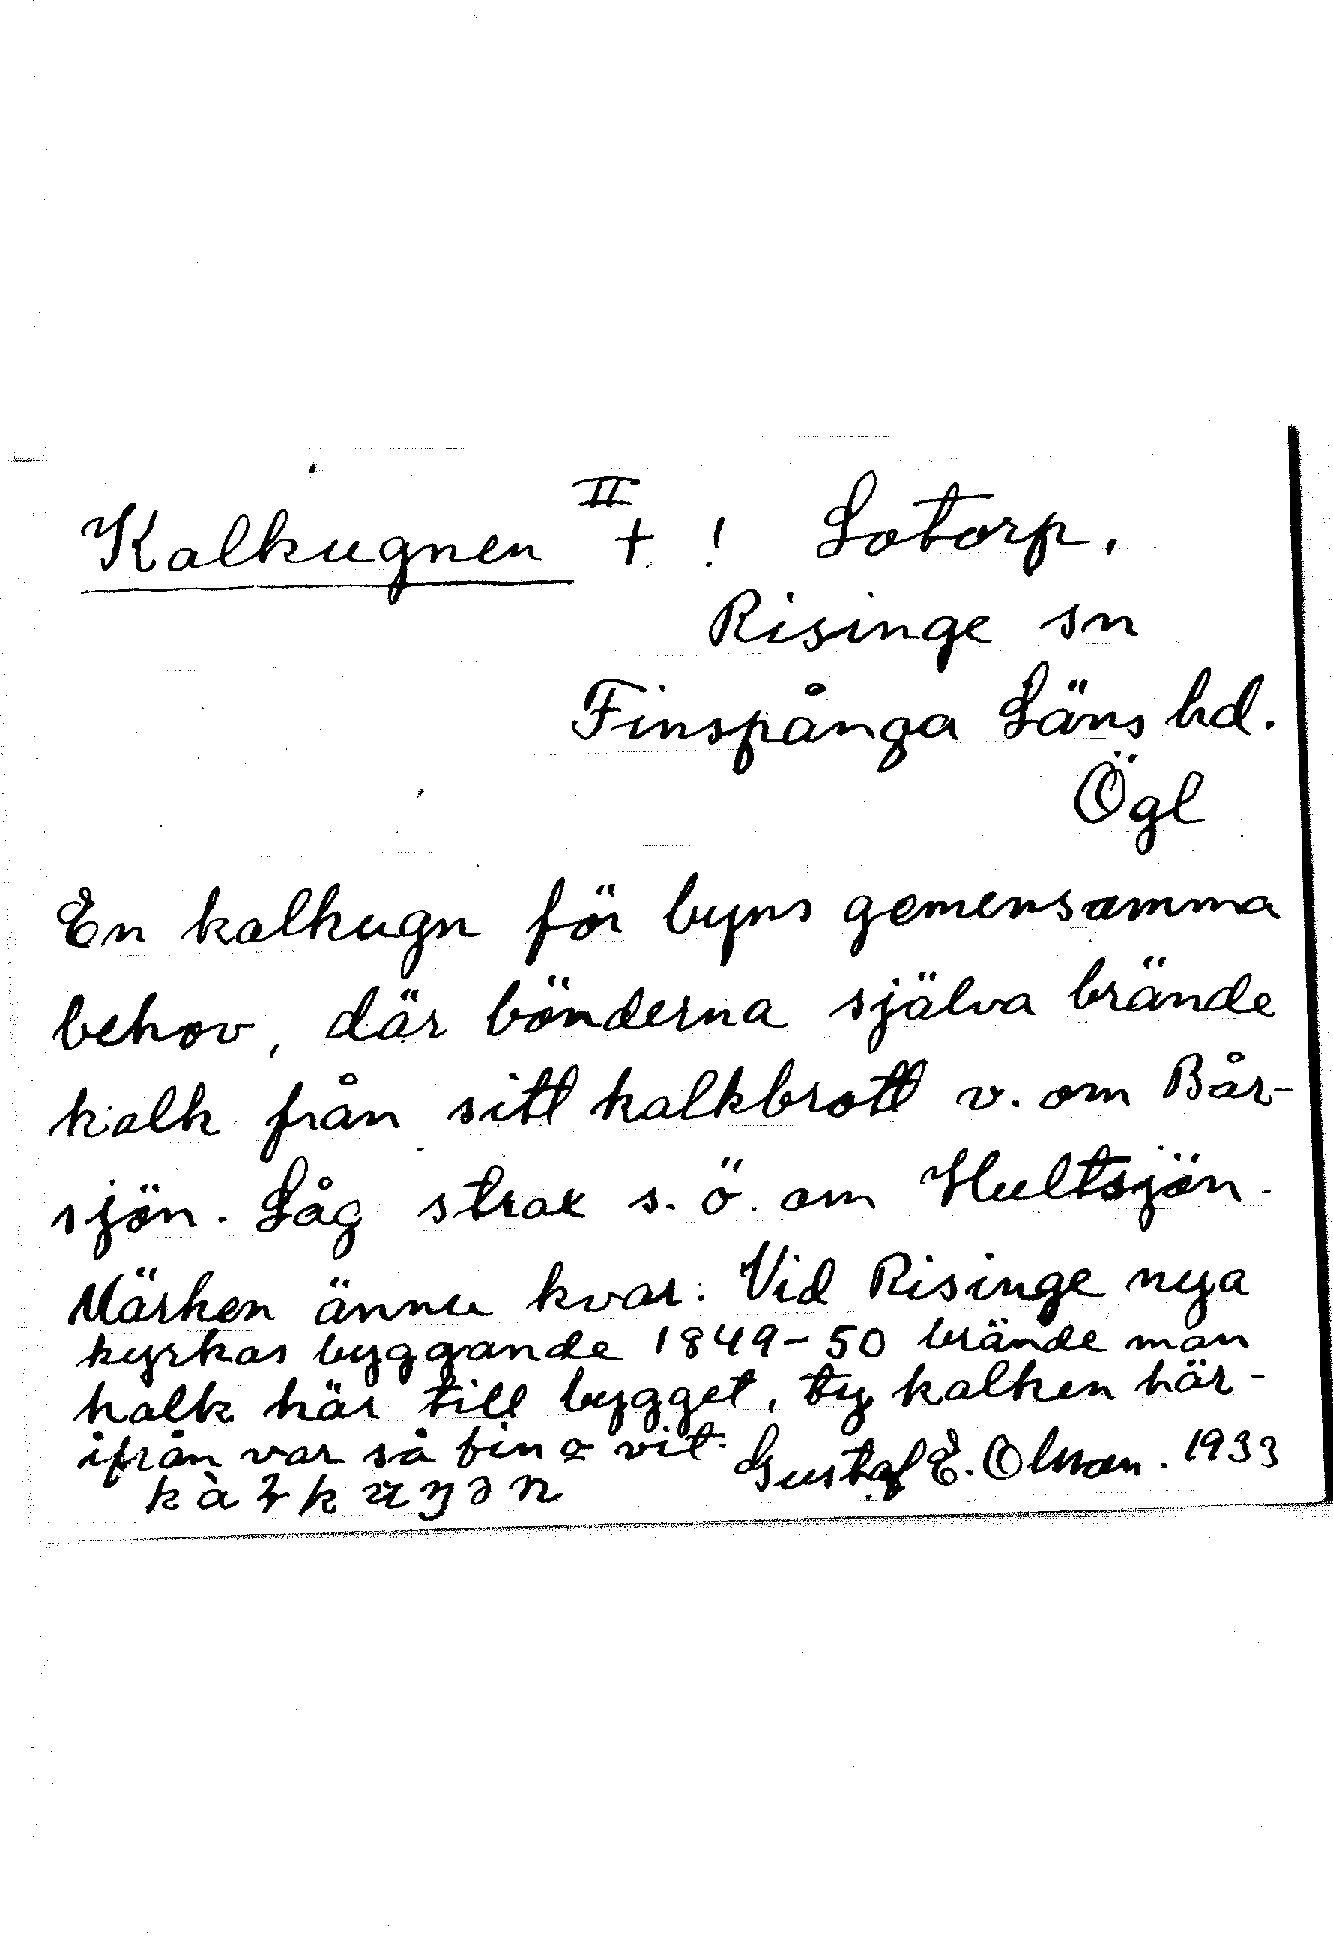 Kalkugnen II + ! Lotorp,
Risinge sn
Finspånga Läns hd.
Ögl
En kalkugn för byns gemensamma
behov, där bönderna själva brände
kalk från sitt kalkbrott v. om Bår-
sjön. Låg strax s. ö. om Hultsjön.
Märken ännu kvar. Vid Risinge nya
kyrkas byggande 1849-50 brände man
kalk här till bygget, ty kalken här-
ifrån var så fin o vit.
Gustaf E. Olsson. 1933